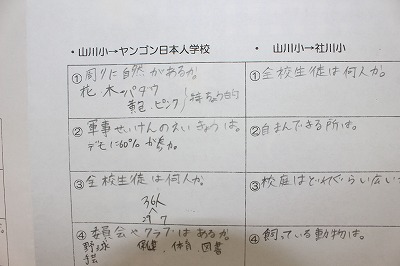 ・山川小→ヤンゴン日本人学校
①周りに自然があるか。
花 木→パダウ
黄色 ピンク 特ちょう的
②軍事せいけんのえいきょうは。
デモに60%が
③全校生徒は何人か。
36人
29 7
④委員会やクラブはあるか。
野球 保健 体育 図書
・山川小→社川小
①全校生徒は何人か。
②自まんできる所は。
③校庭はどれぐらい広い
④飼っている動物は。